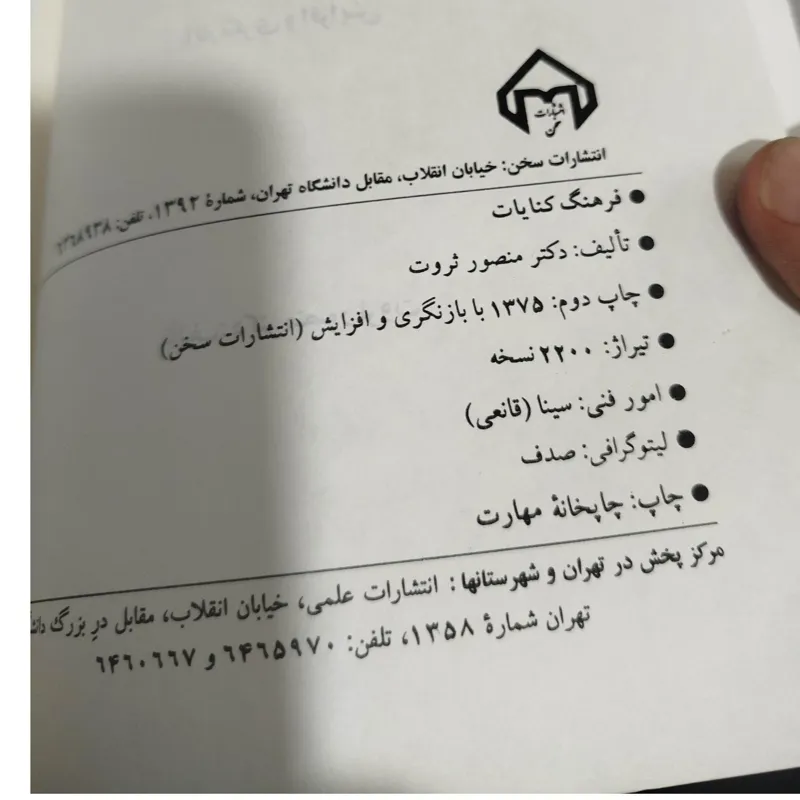 انتشارات
سخن
انتشارات سخن: خیابان انقلاب، مقابل دانشگاه تهران، شمارهٔ ۱۳۹۲، تلفن:
● فرهنگ کنایات
● تألیف: دکتر منصور ثروت
● چاپ دوم: ۱۳۷۵ با بازنگری و افزایش (انتشارات سخن)
● تیراژ: ۲۲۰۰ نسخه
● امور فنی: سینا (قانعی)
● لیتوگرافی: صدف
● چاپ: چاپخانهٔ مهارت
مرکز پخش در تهران و شهرستانها: انتشارات علمی، خیابان انقلاب، مقابل درِ بزرگ
تهران شمارهٔ ۱۳۵۸، تلفن: ۶۴۶۵۹۷۰ و ۶۴۶۰۶۶۷